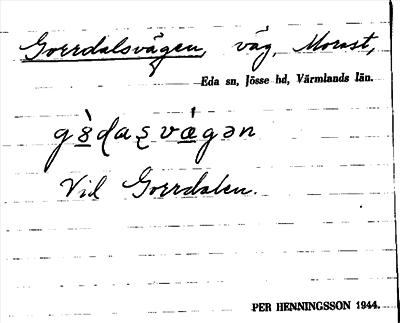 Gorrdalsvägen, väg, Morast,
Eda sn, Jösse hd, Värmlands län.
Vid Gorrdalen.
PER HENNINGSSON 1944.